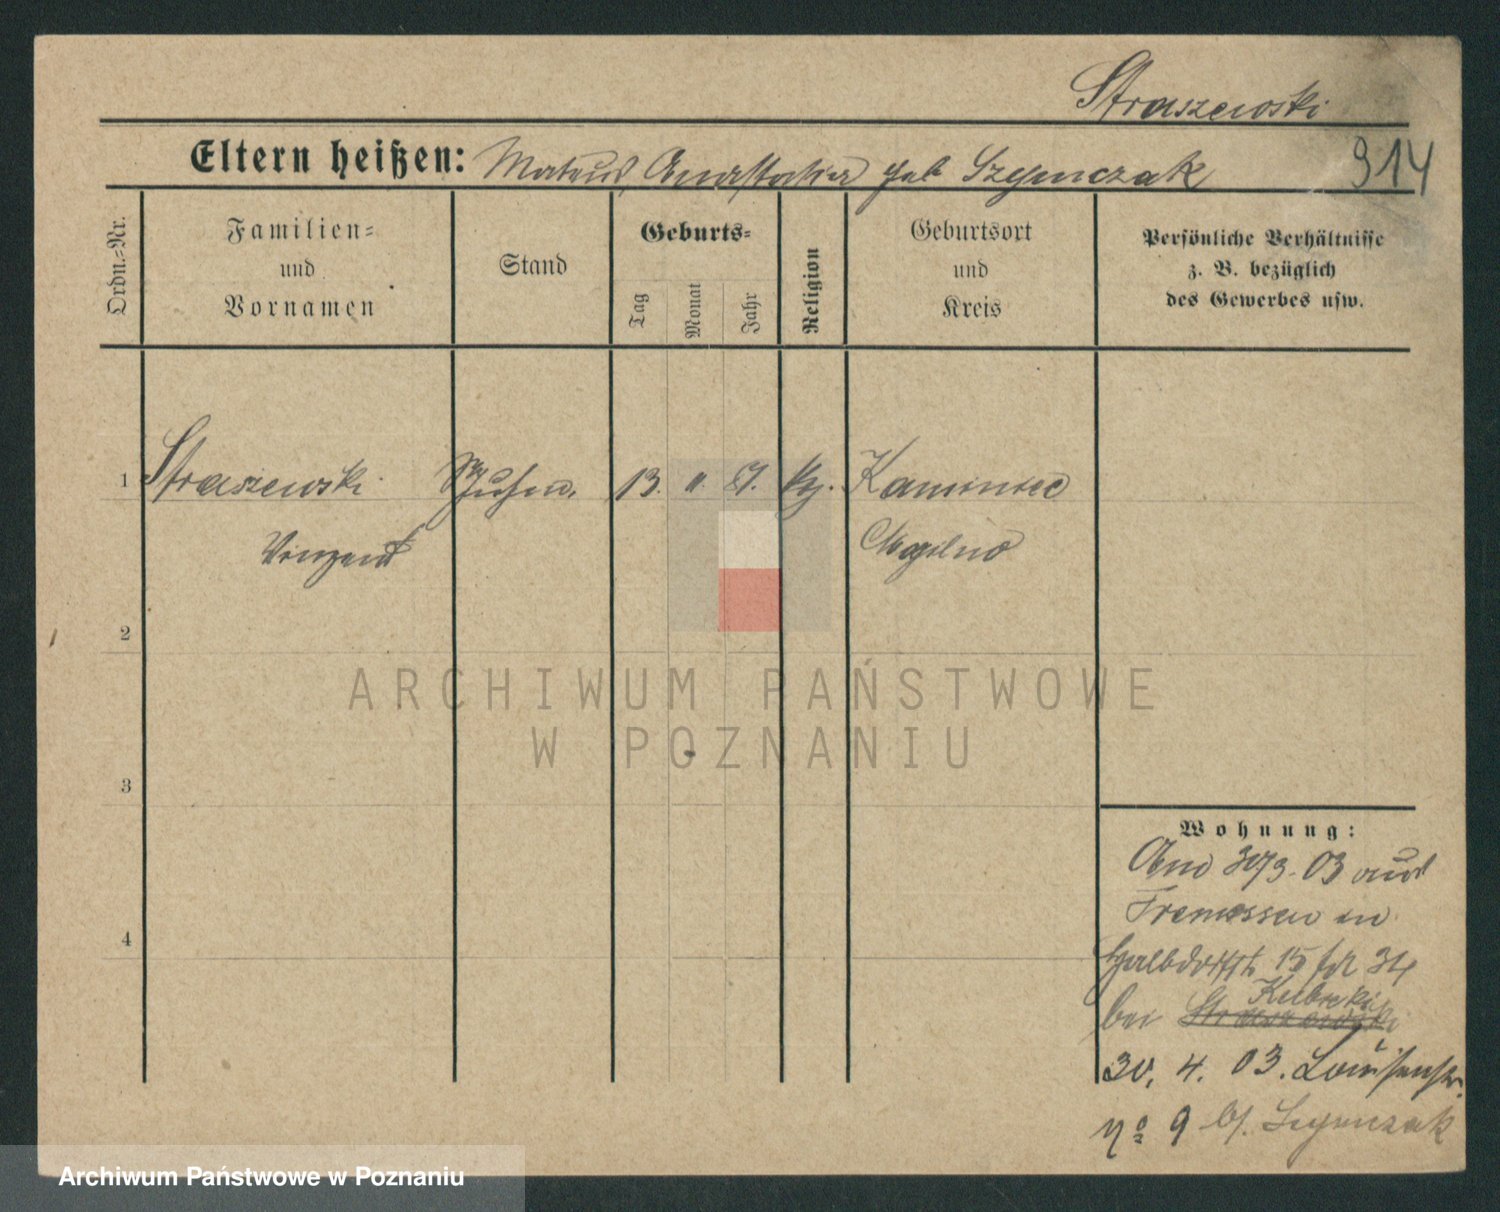 Straszewski
Eltern heißen: Mateus, Anastasia geb Szymczak
914
Ordn.-Nr.
Familien-
und
Vornamen
Stand
Geburts-
Tag
Monat
Jahr
Religion
Geburtsort
und
Kreis
Persönliche Verhältnisse
z. B. bezüglich
des Gewerbes usw.
1 Straszewski 13. 11. 87. Kaminiec
Vinzent Mogilno
2
ARCHIWUM PAŃSTWOWE
W POZNANIU
3
Wohnung:
30/3. 03 aus
Tremessen in
Halbdorfstr 15
Kubicki
bei Straszewski
4
30. 4. 03. Louisenstr.
No 9 b/. Szymczak
Archiwum Państwowe w Poznaniu